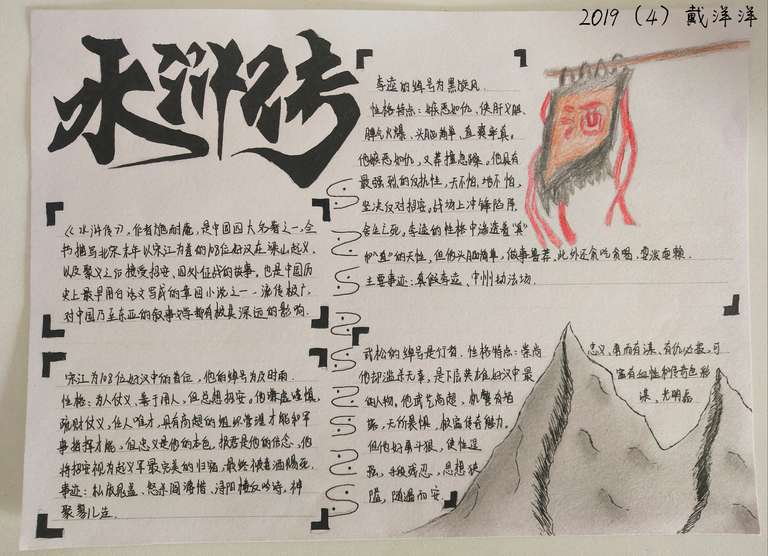 2019（4）戴洋洋
水浒传
李逵的绰号为黑旋风.
性格特点：嫉恶如仇，侠肝义胆、
脾气火爆、头脑简单、直爽率真。
他嫉恶如仇，又莽撞急躁。他具有
最强烈的反抗性，天不怕，地不怕，
坚决反对招安。战场上冲锋陷阵
舍生忘死。李逵的性格中渗透着“真”
和“直”的天性，但他头脑简单，做事鲁莽.此外还贪吃贪喝、耍泼耍赖.
主要事迹：真假李逵、中州劫法场.
《水浒传》，作者施耐庵，是中国四大名著之一，全
书描写北宋末年以宋江为首的108位好汉在梁山起义，
以及聚义之后接受招安、四处征战的故事。也是中国历
史上最早用白话文写成的章回小说之一.流传极广，
对中国乃至东亚的叙事文学都有极其深远的影响.
宋江为108位好汉中的首位，他的绰号为及时雨.
性格：为人仗义、善于用人，但总想招安。他谦虚谨慎，
疏财仗义，任人唯才，具有高超的组织管理才能和军
事指挥才能，但忠义是他的本色，报君是他的信念，他
将招安视为起义军最完美的归宿，最终被毒酒赐死.
事迹：私放晁盖、怒杀阎婆惜、浔阳楼反吟诗，神
聚蓼儿洼.
武松的绰号是行者.性格特点：崇尚
忠义、勇而有谋、有仇必报，可
他却滥杀无辜，是下层英雄好汉中最
富有血性和传奇色彩
的人物。他武艺高超、机警有
谋、光明磊
，无所畏惧，敢
但他好勇斗狠，使性逞
强，手段残忍，思想狭
隘，随遇而安.